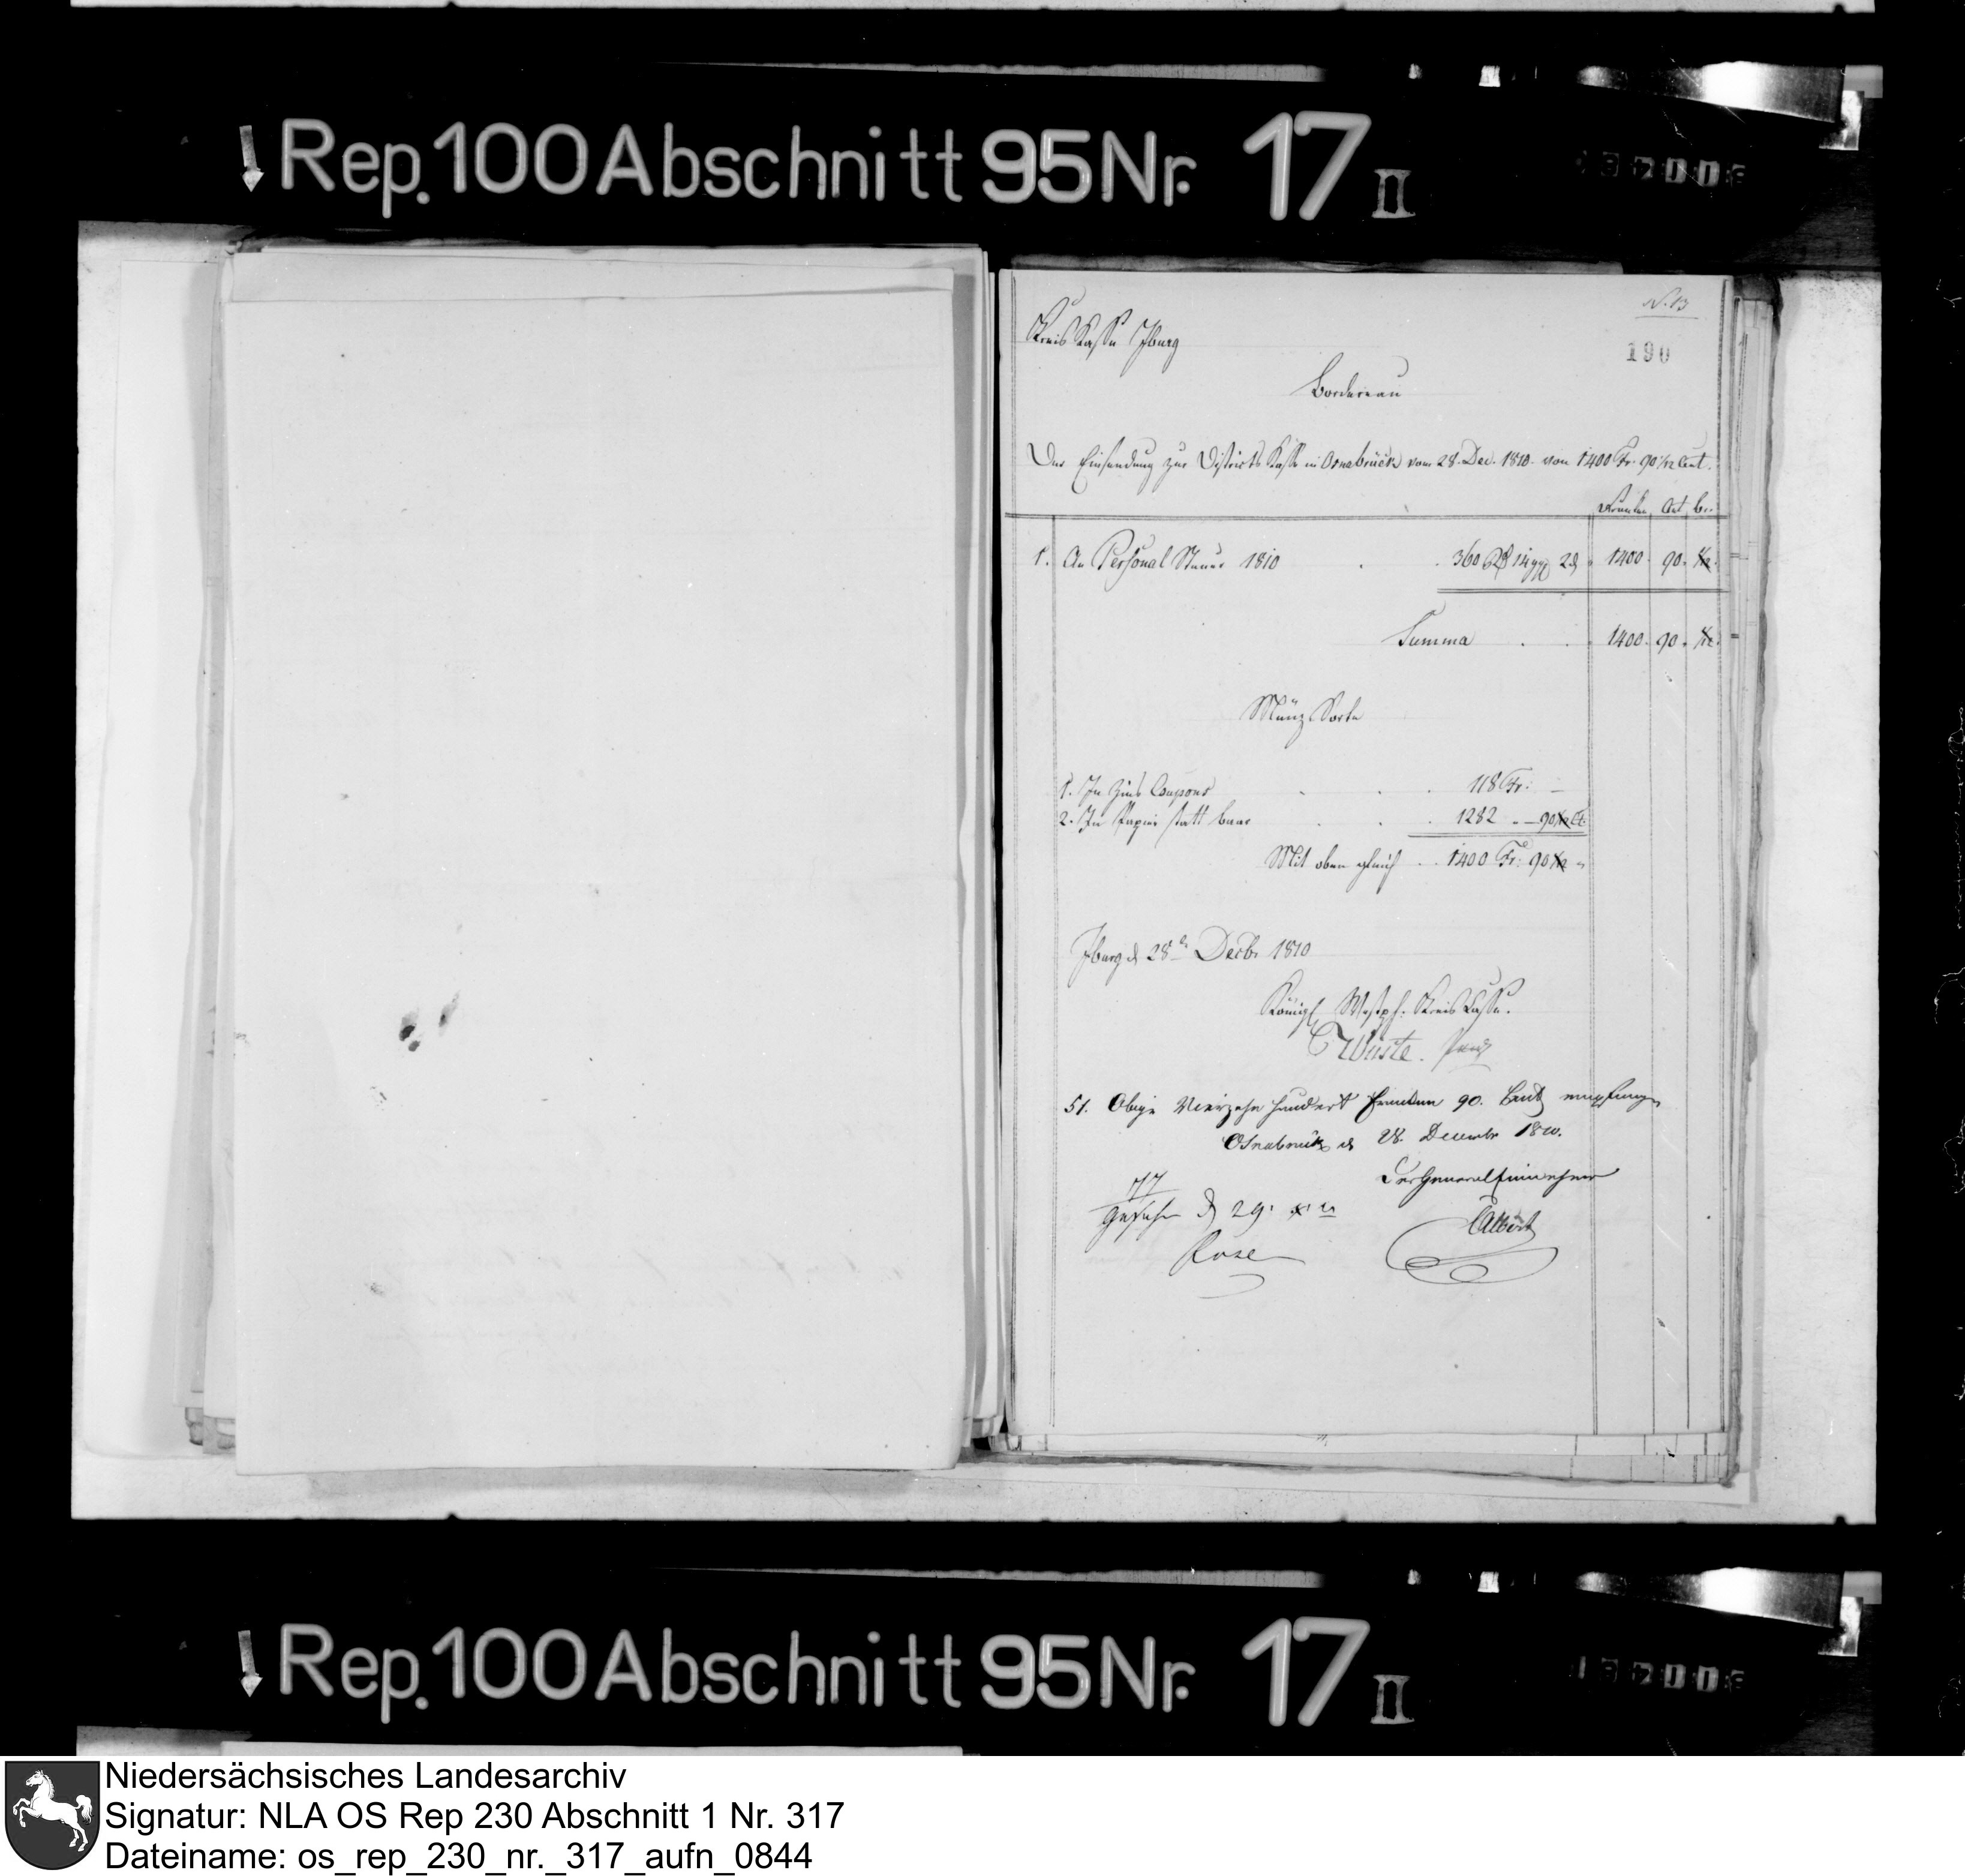 Rep. 100 Abschnitt 95 Nr. 17 II
N. 13
190
Kreis Kasse Iburg
Bordereau
Der Einsendung zur Districts Kasse in Osnabrück vom 28. Dec. 1810. von 1400 Fr. 90 1/12 Cent.
Franken Cent
1. An Personal Steuer 1810 360 14 2 1400. 90.
Summa 1400. 90.
Münz Sorte
1. In Zins Coupons 118 Fr: —
2. In Papier statt baar 1282 - 90
Mit oben gleich 1400 Fr: 90
Iburg d 28n Decbr 1810
Königl Westph: Kreis Kasse.
Wüste.
51. Obige Vierzehn hundert Franken 90. Cent empfangen
Osnabrück d 28. Decembr 1810.
Der General Einnehmer
Gesehn d 29:
Rose
Rep. 100 Abschnitt 95 Nr. 17 II
Niedersächsisches Landesarchiv
Signatur: NLA OS Rep 230 Abschnitt 1 Nr. 317
Dateiname: os_rep_230_nr._317_aufn_0844